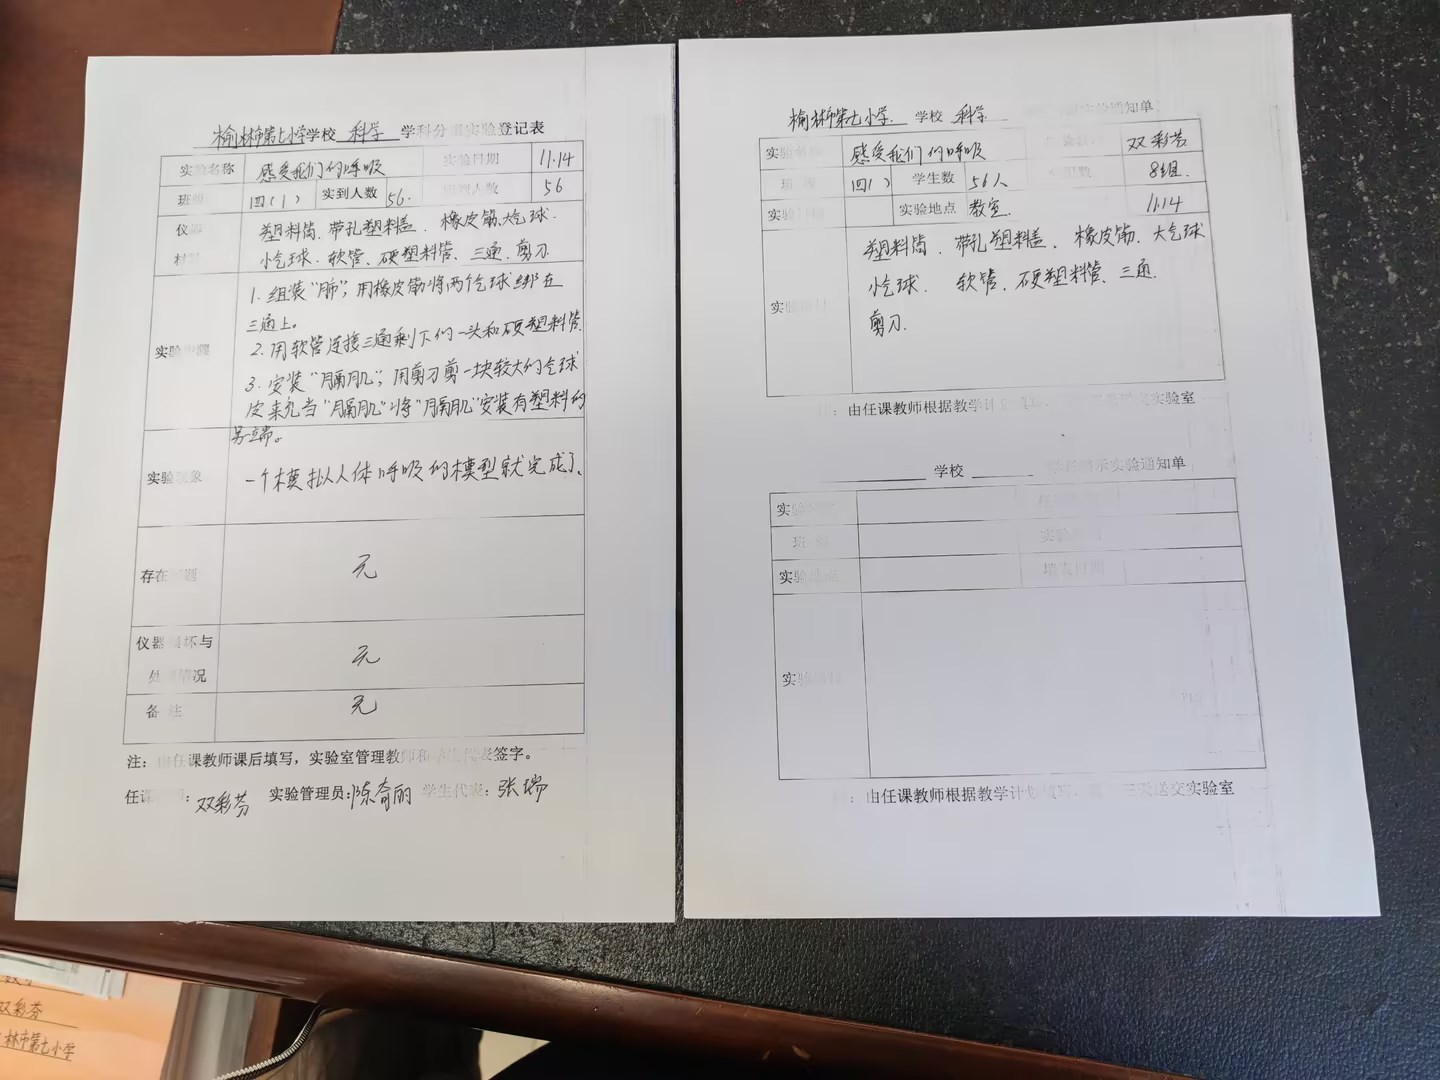 榆林市第七小学学校 科学 学科分组实验登记表
实验名称 感受我们的呼吸 实验日期 11.14
班级 四(1) 实到人数 56. 人数 56
仪器 塑料筒. 带孔塑料盖. 橡皮筋、大气球.
材料 小气球. 软管、硬塑料管、三通. 剪刀.
1. 组装“肺”; 用橡皮筋将两个气球绑在
三通上。
实验步骤 2. 用软管连接三通剩下的一头和硬塑料管.
3. 安装“膈肌”; 用剪刀剪一块较大的气球
皮来充当“膈肌”将“膈肌”安装有塑料的
另一端。
实验现象 一个模拟人体呼吸的模型就完成了、
存在问题 无
仪器损坏与 无
处理情况
备注 无
注: 由任课教师课后填写，实验室管理教师和学生代表签字。
任课教师: 双彩芬 实验管理员: 陈奇丽 学生代表: 张瑞
榆林市第七小学. 学校 科学 实验通知单
实验名称 感受我们的呼吸 双彩芬
班级 四( ) 学生数 56人 组数 8组.
实验 实验地点 教室. 11.14
塑料筒. 带孔塑料盖. 橡皮筋. 大气球
实验 小气球. 软管、硬塑料管、三通.
剪刀.
: 由任课教师根据教学计 实验室
学校 演示实验通知单
实验
班级 实验
实验地点 填表日期
实验
: 由任课教师根据教学计划填写，三天送交实验室
双彩芬
林市第七小学